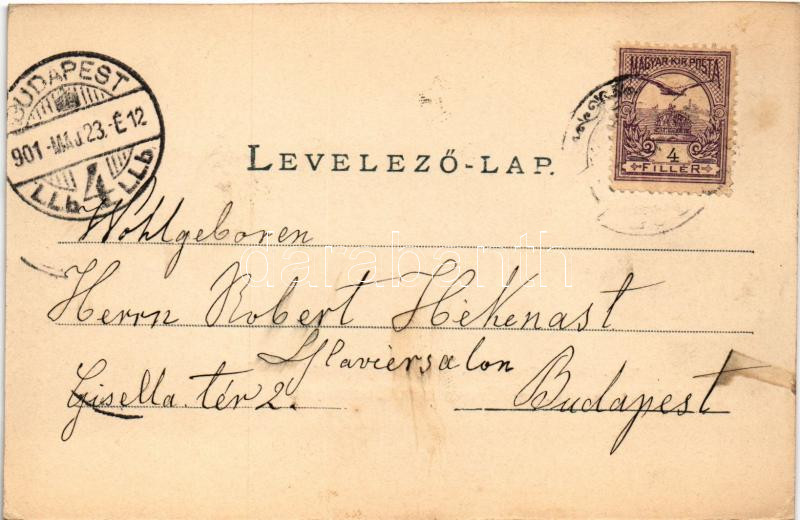 BUDAPEST
901-MÁJ 23.-É 12
4
LLb LLb
MAGYAR KIR. POSTA
4
FILLÉR
LEVELEZŐ-LAP.
Wohlgeboren
Herrn Robert Hekenast
Klaviersalon
Gisella tér 2. Budapest
darabanth